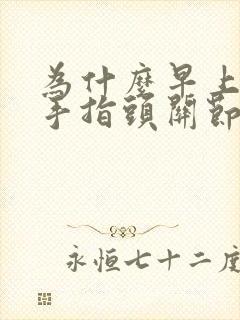 為什麼早上
手指頭關節
永恒七十二度